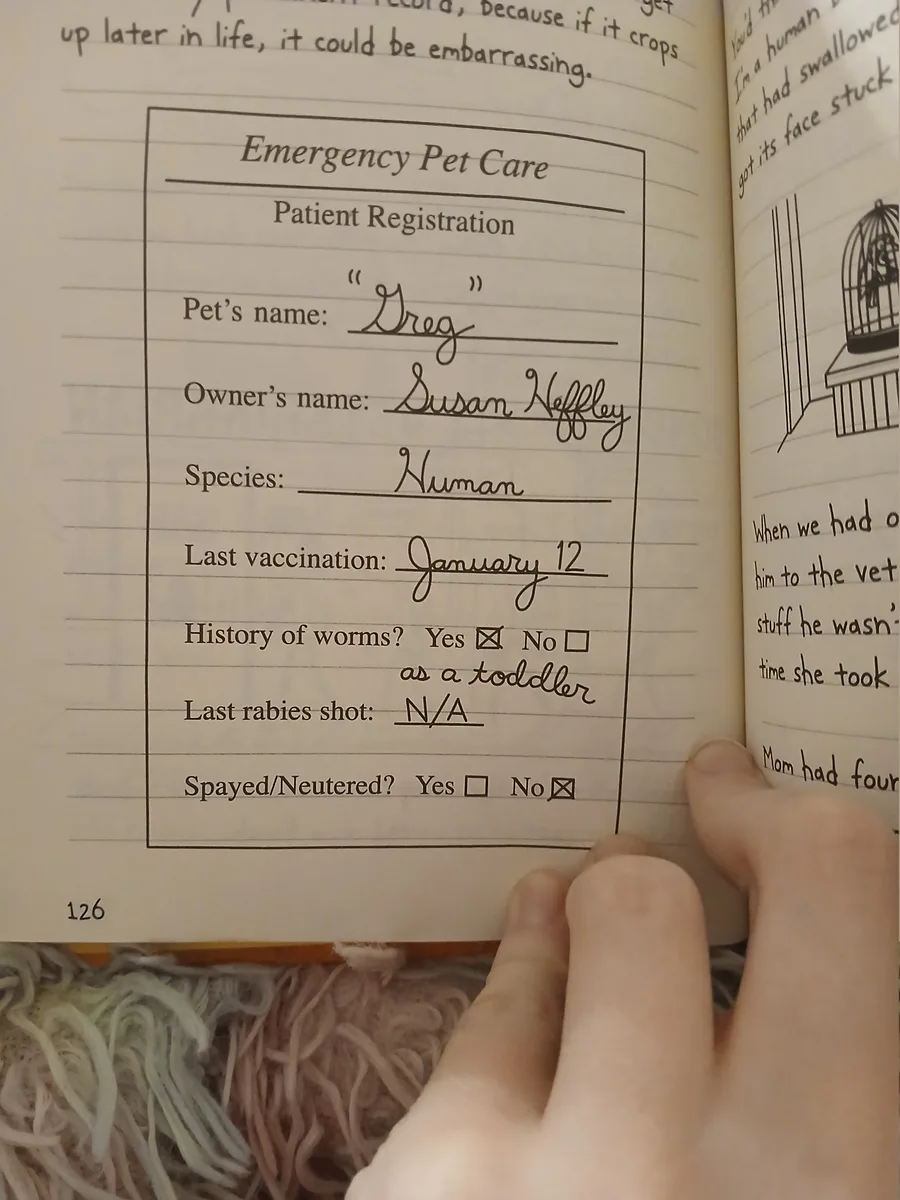 record, because if it crops
up later in life, it could be embarrassing.
Emergency Pet Care
Patient Registration
Pet's name: "Greg"
Owner's name: Susan Heffley
Species: Human
Last vaccination: January 12
History of worms? Yes ☒ No ☐
as a toddler
Last rabies shot: N/A
Spayed/Neutered? Yes ☐ No ☒
126
I'm a human
that had swallowed
got its face stuck
When we had
him to the vet
stuff he wasn'
time she took
Mom had four